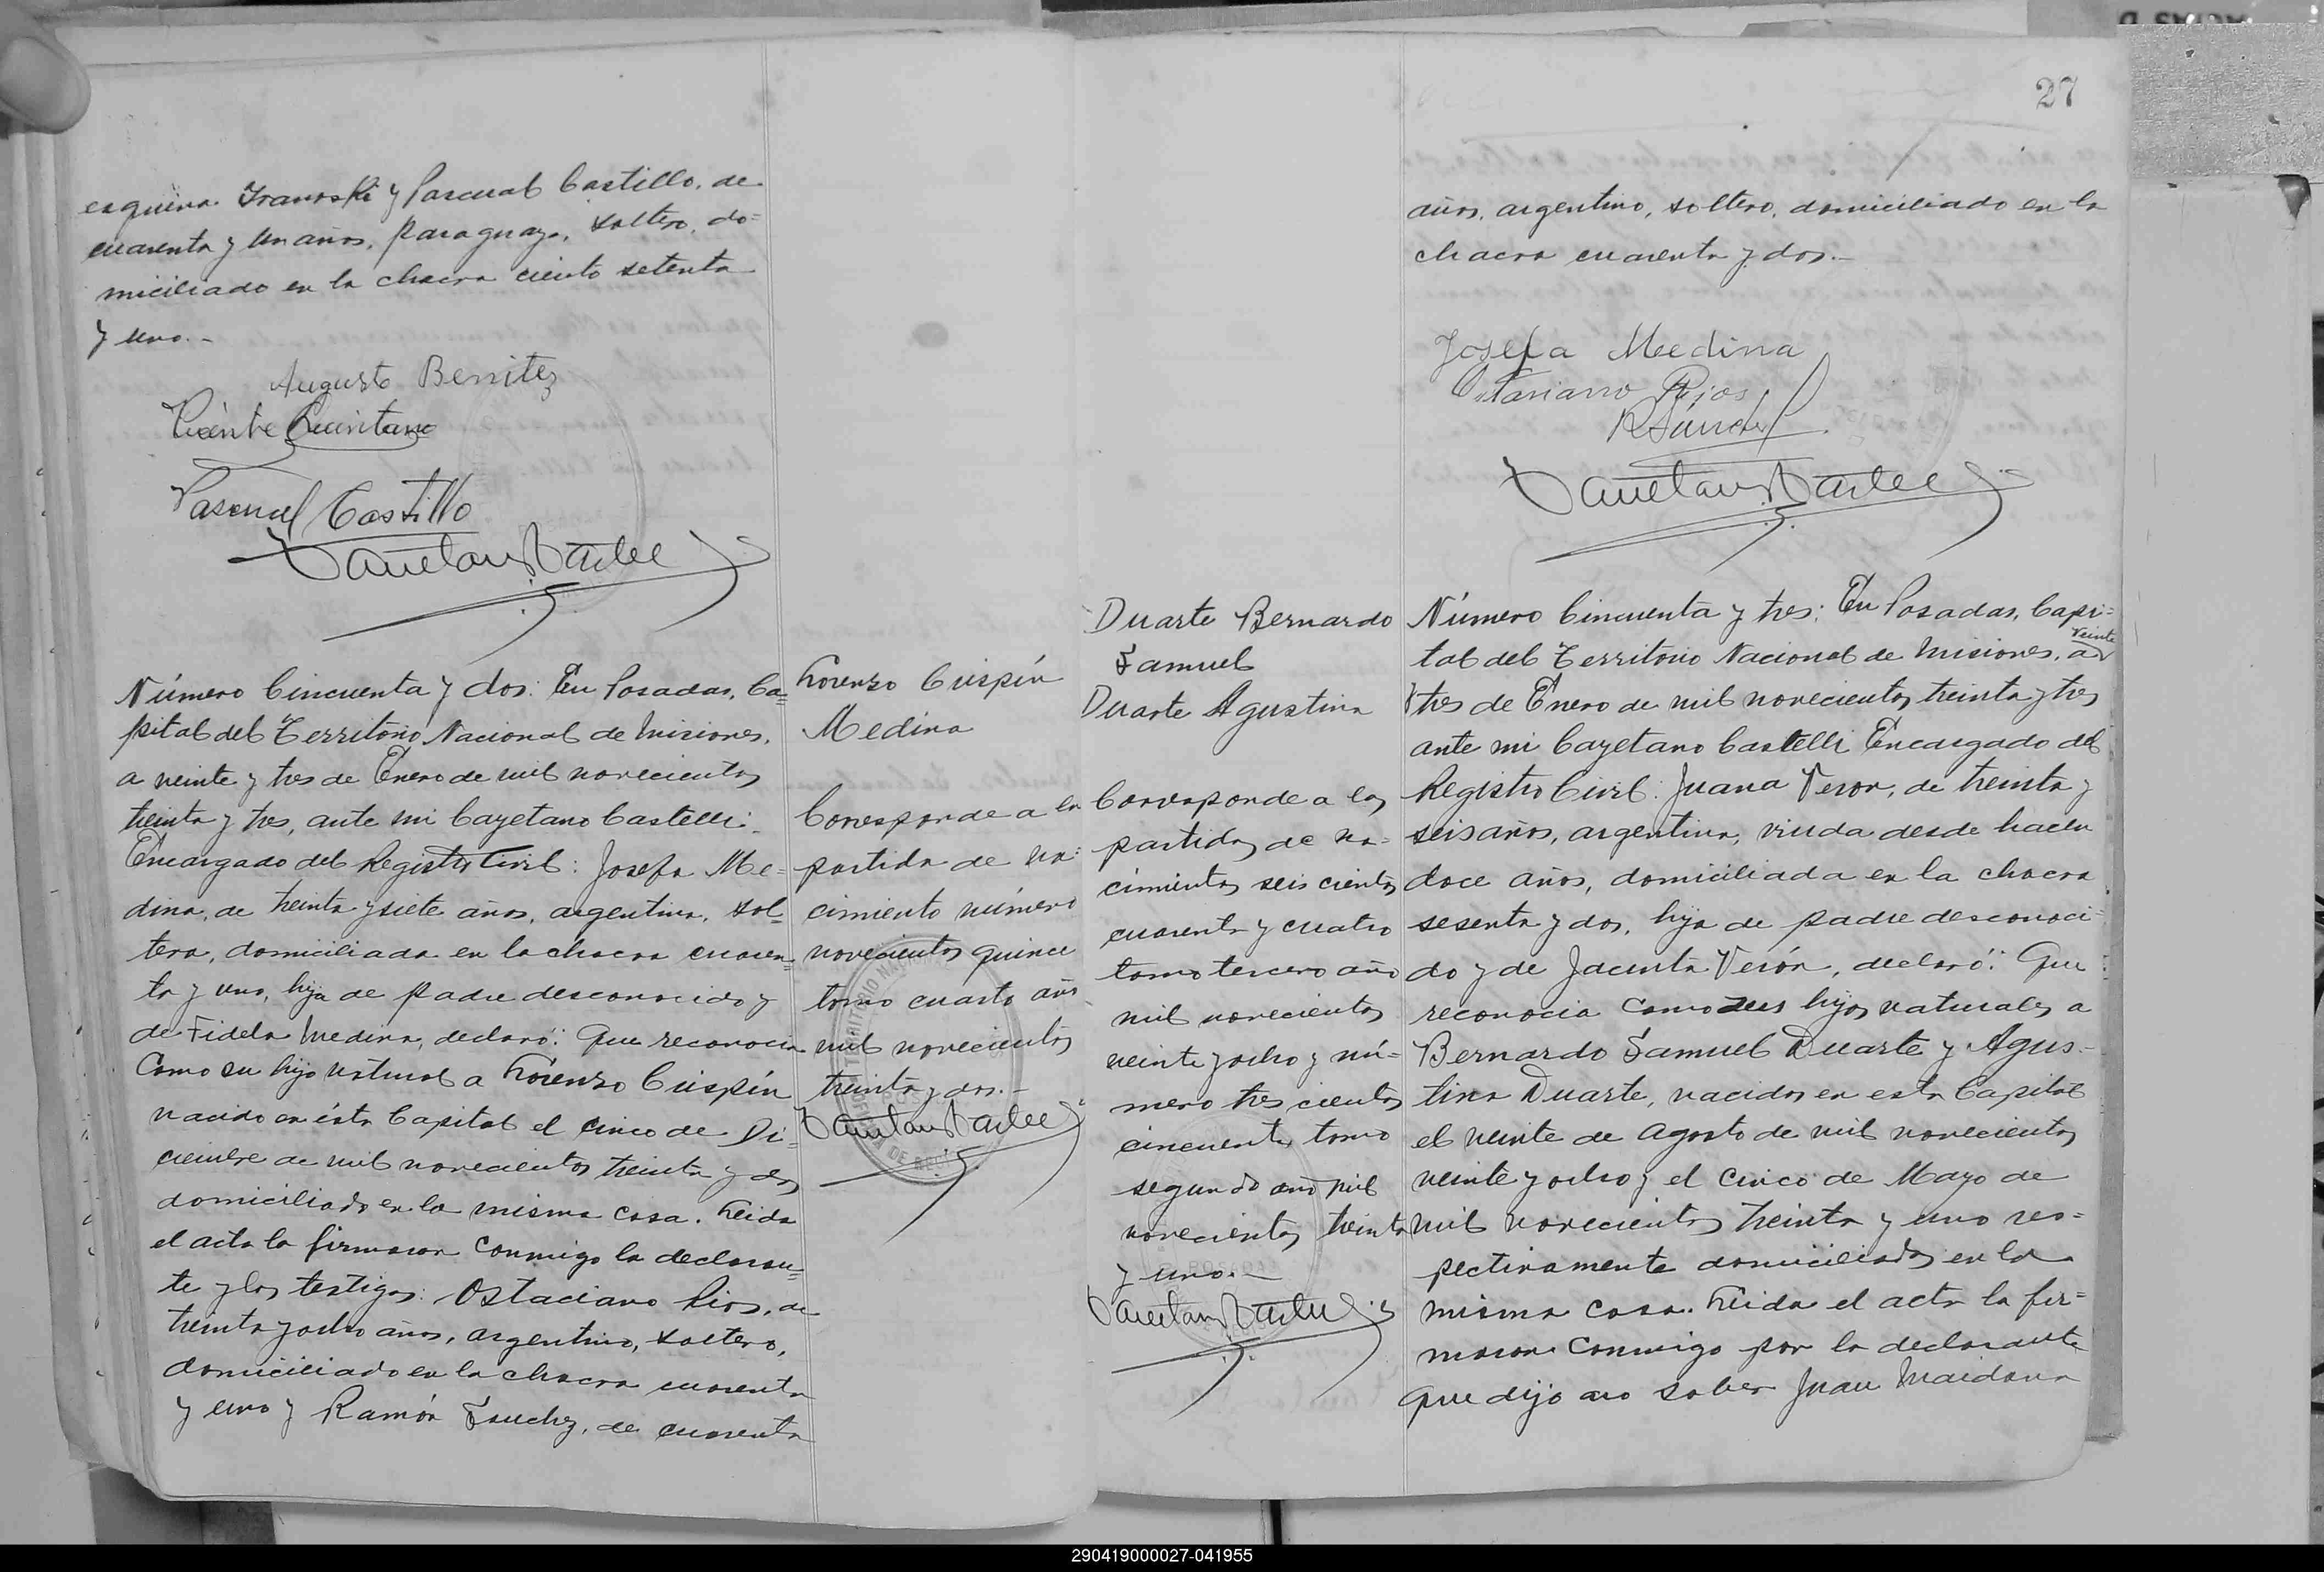 esquina Iranoski y Pascual Castillo, de
cuarenta y un años, paraguayo, soltero, do=
miciliado en la chacra ciento setenta
y uno.-
Augusto Benitez
Vicente Quintana
Pascual Castillo
Número Cincuenta y dos: En Posadas, Ca=
pital del Territorio Nacional de Misiones,
a veinte y tres de Enero de mil novecientos
treinta y tres, ante mi Cayetano Castelli
Encargado del Registro Civil: Josefa Me=
dina, de treinta y siete años, argentina, sol=
tera, domiciliada en la chacra cuaren=
ta y uno, hija de padre desconocido y
de Fidela Medina, declaró: Que reconocia
como su hijo natural a Lorenzo Crispín
nacido en ésta Capital el cinco de Di=
ciembre de mil novecientos treinta y dos
domiciliado en la misma casa. Leida
el acta la firmaron conmigo la declaran=
te y los testigos: Ostaciano Rios, de
treinta y ocho años, argentino, soltero,
domiciliado en la chacra cuarenta
y uno y Ramón Sanchez, de cuarenta
Lorenzo Crispín
Medina
Corresponde a la
partida de na=
cimiento número
novecientos quince
tomo cuarto año
mil novecientos
treinta y dos.-
27
años, argentino, soltero, domiciliado en la
chacra cuarenta y dos.-
Josefa Medina
Ostasiano Rios
R Sánchez
Duarte Bernardo
Samuel
Duarte Agustina
Corresponde a las
partidas de na=
cimientos seis cientos
cuarenta y cuatro
tomo tercero año
mil novecientos
veinte y ocho y nú=
mero tres cientos
cincuenta tomo
segundo año mil
novecientos treinta
y uno.-
Número Cincuenta y tres: En Posadas, Capi=
tal del Territorio Nacional de Misiones, a veinte
y tres de Enero de mil novecientos treinta y tres
ante mi Cayetano Castelli Encargado del
Registro Civil: Juana Veron, de treinta y
seis años, argentina, viuda desde hacen
doce años, domiciliada en la chacra
sesenta y dos, hija de padre desconoci=
do y de Jacinta Verón, declaró: Que
reconocia como sus hijos naturales a
Bernardo Samuel Duarte y Agus=
tina Duarte, nacidos en esta Capital
el veinte de Agosto de mil novecientos
veinte y ocho y el cinco de Mayo de
mil novecientos treinta y uno res=
pectivamente domiciliados en la
misma casa. Leida el acta la fir=
maron conmigo por la declarante
que dijo no saber Juan Maidana
290419000027-041955